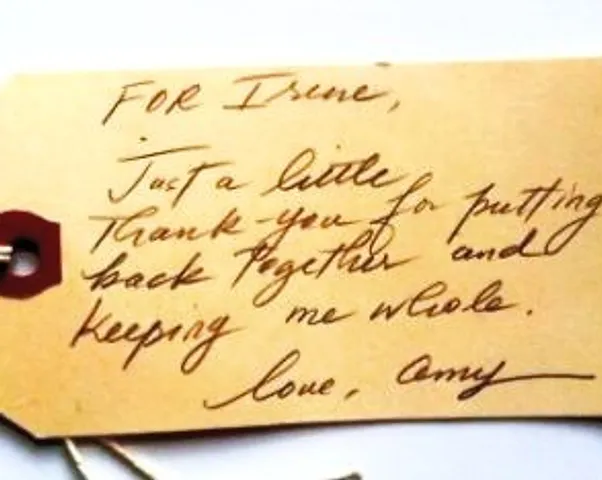 FOR Irene,
Just a little
Thank-you for putting
back together and
Keeping me whole.
love, Amy